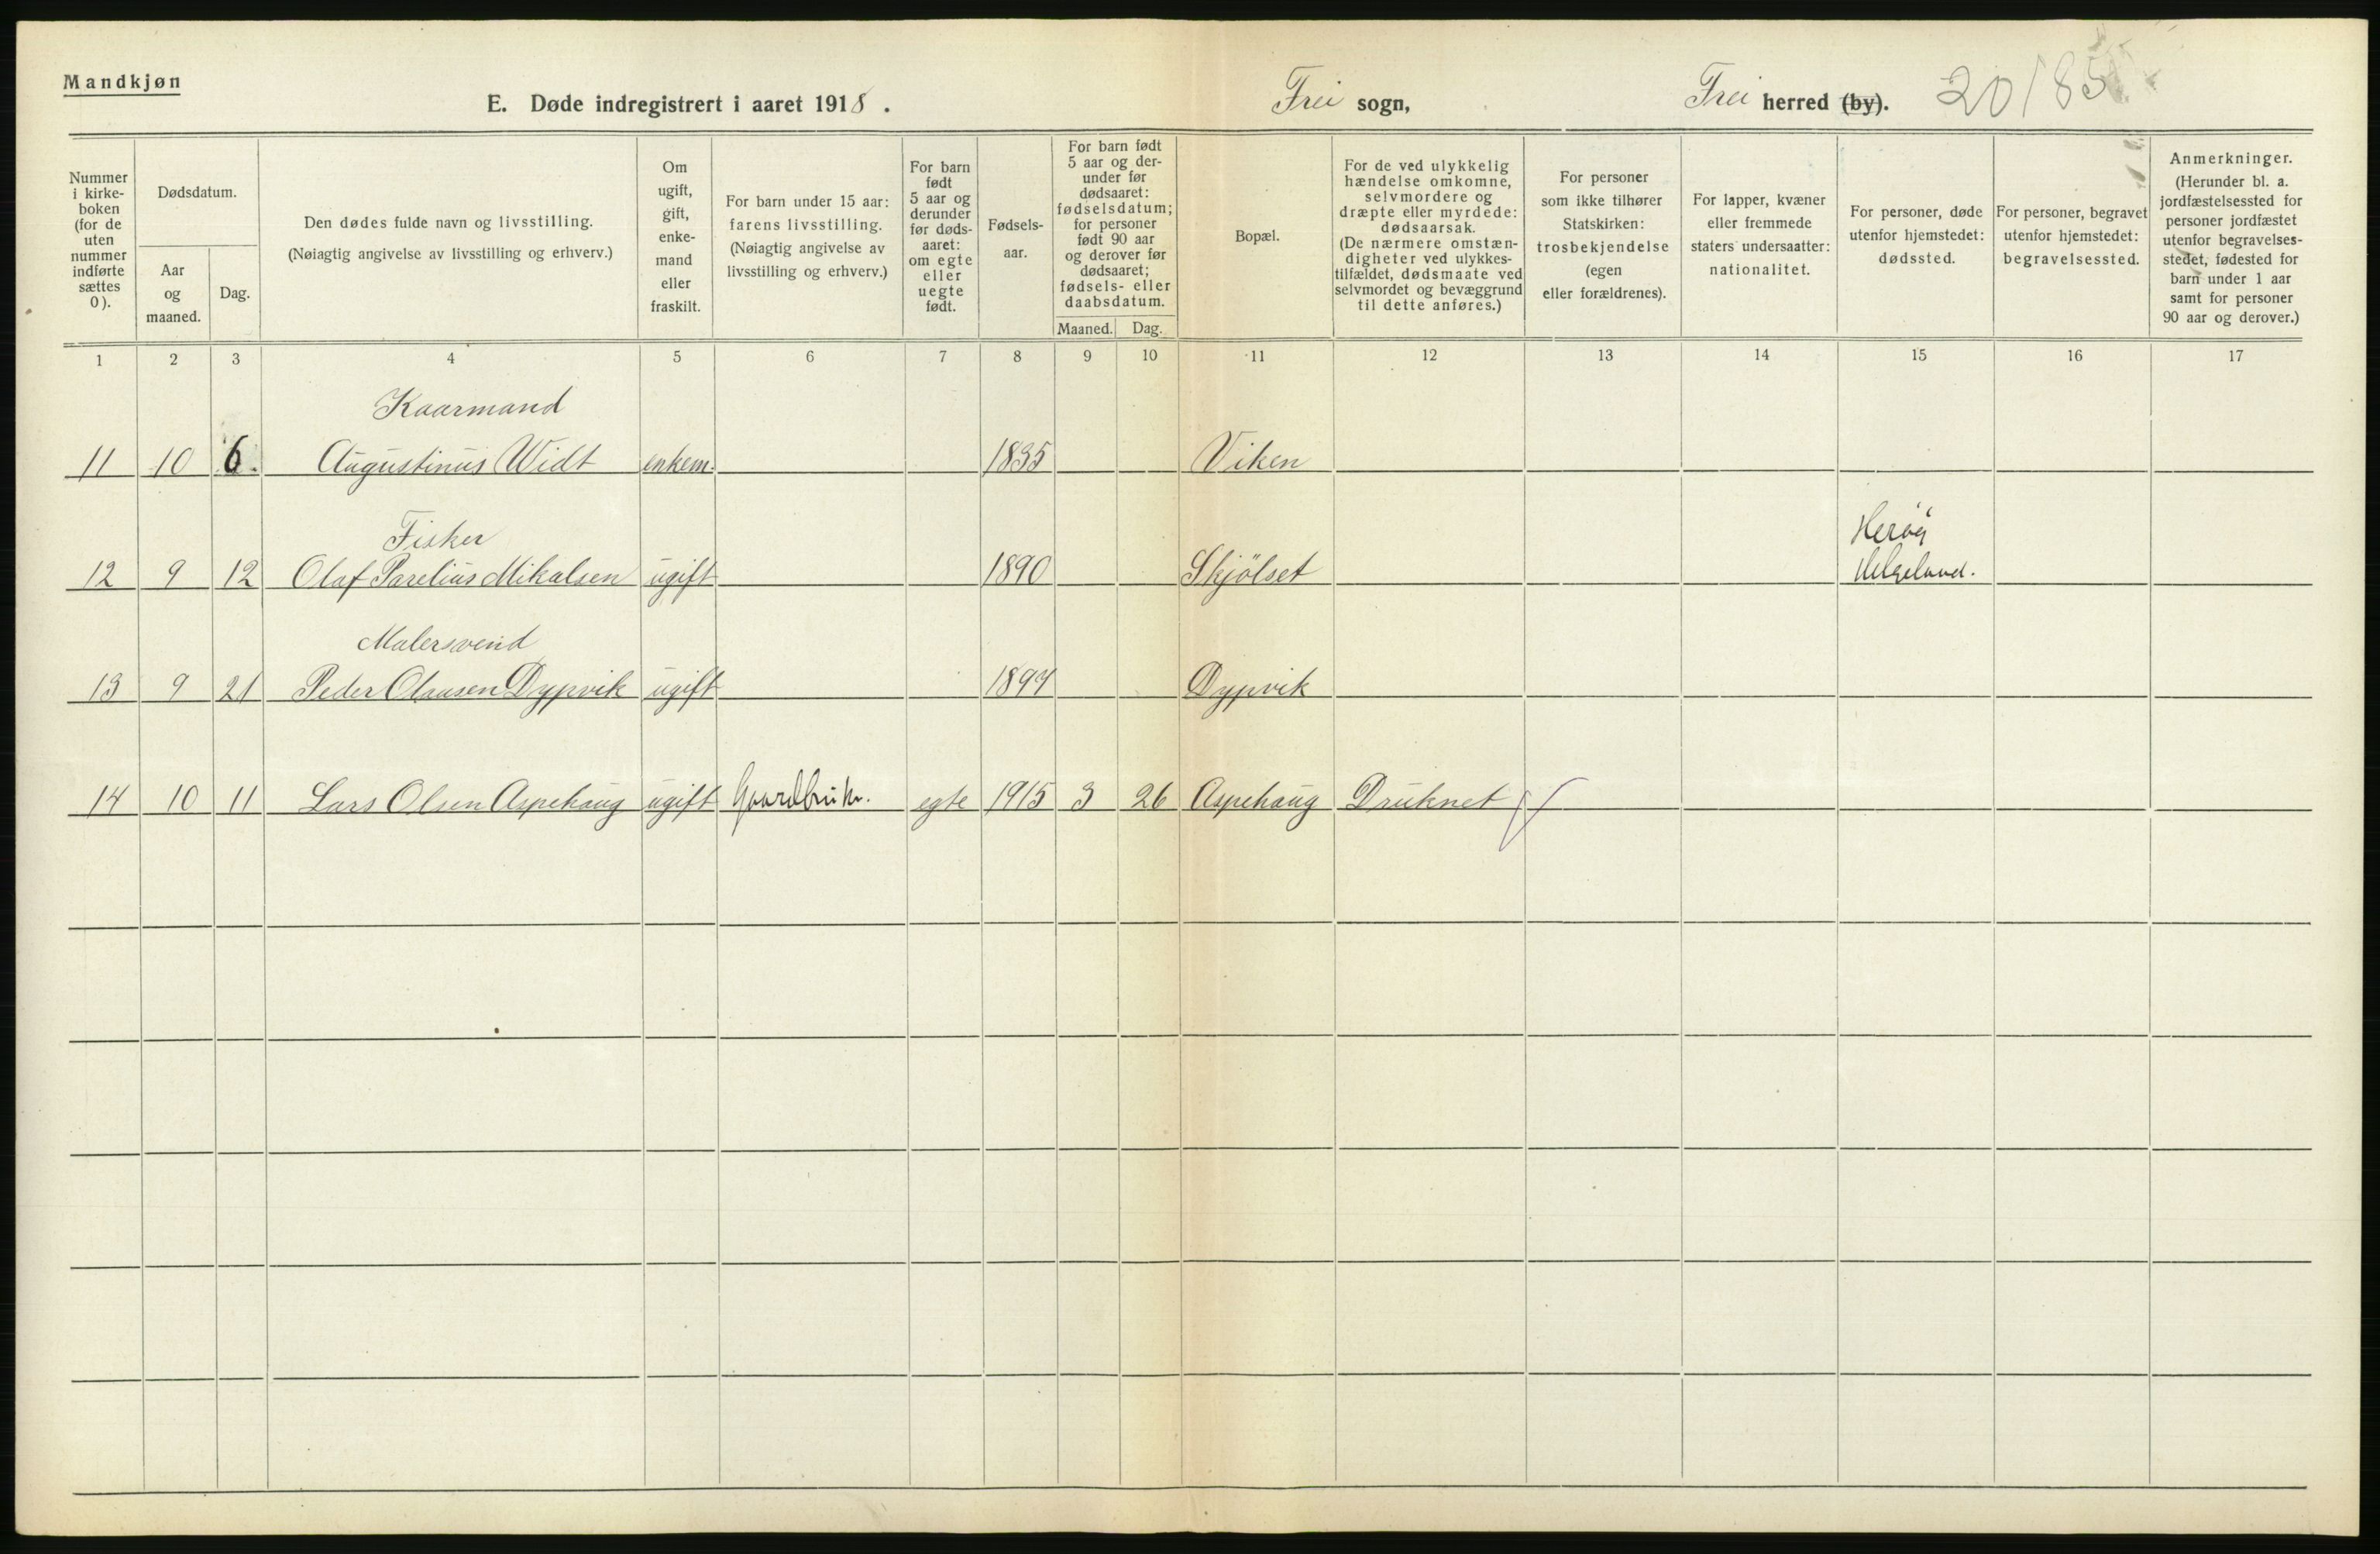 Mandkjøn
E. Døde indregistrert i aaret 1918. Frei sogn, Frei herred (by). 20185
Nummer i kirkeboken (for de uten nummer indførte sættes 0).
Dødsdatum.
Aar og maaned.
Dag.
Den dødes fulde navn og livsstilling.
(Nøiagtig angivelse av livsstilling og erhverv.)
Om ugift, gift, enkemand eller fraskilt.
For barn under 15 aar: farens livsstilling.
(Nøiagtig angivelse av livsstilling og erhverv.)
For barn født 5 aar og derunder før dødsaaret: om egte eller uegte født.
Fødselsaar.
For barn født 5 aar og derunder før dødsaaret: fødselsdatum; for personer født 90 aar og derover før dødsaaret; fødsels- eller daabsdatum.
Maaned. Dag.
Bopæl.
For de ved ulykkelig hændelse omkomne, selvmordere og dræpte eller myrdede: dødsaarsak.
(De nærmere omstændigheter ved ulykkestilfældet, dødsmaate ved selvmordet og bevæggrund til dette anføres.)
For personer som ikke tilhører Statskirken: trosbekjendelse (egen eller forældrenes).
For lapper, kvæner eller fremmede staters undersaatter: nationalitet.
For personer, døde utenfor hjemstedet: dødssted.
For personer, begravet utenfor hjemstedet: begravelsessted.
Anmerkninger.
(Herunder bl. a. jordfæstelsessted for personer jordfæstet utenfor begravelsesstedet, fødested for barn under 1 aar samt for personer 90 aar og derover.)
1 2 3 4 5 6 7 8 9 10 11 12 13 14 15 16 17
Kaarmand
11 10 6. Augustinus Widt enkem. 1835 Viken
Fisker Herøy
12 9 12 Olaf Parelius Mikalsen ugift 1890 Skjölset Helgeland.
Malersvend
13 9 21 Peder Olausen Dypvik ugift 1894 Dypvik
14 10 11 Lars Olsen Aspehaug ugift Gaardbruk. egte 1915 3 26 Aspehaug Druknet